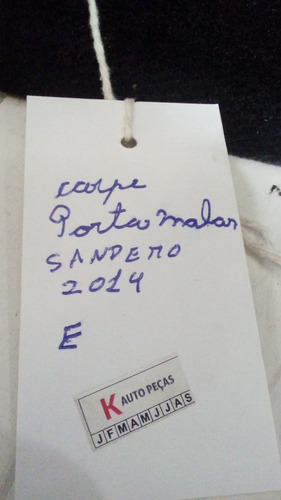 carpe
Porta malas
SANDERO
2014
E
K AUTO PEÇAS
J F M A M J J A S